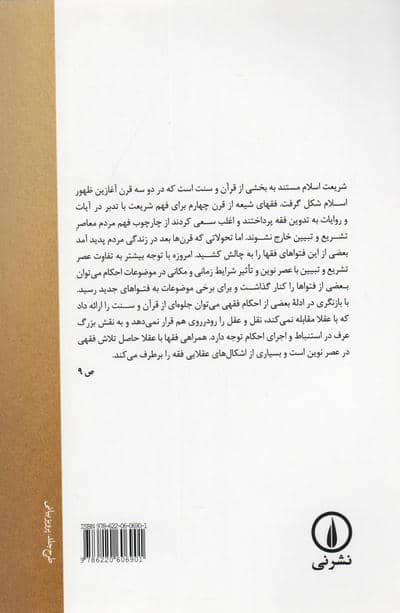 شریعت اسلام مستند به بخشی از قرآن و سنت است که در دو سه قرن آغازین ظهور
اسلام شکل گرفت. فقهای شیعه از قرن چهارم برای فهم شریعت با تدبر در آیات
و روایات به تدوین فقه پرداختند و اغلب سعی کردند از چارچوب فهم مردم معاصرِ
تشریع و تبیین خارج نشوند. اما تحولاتی که قرن‌ها بعد در زندگی مردم پدید آمد
بعضی از این فتواهای فقها را به چالش کشید. امروزه با توجه بیشتر به تفاوت عصر
تشریع و تبیین با عصر نوین و تأثیر شرایط زمانی و مکانی در موضوعات احکام می‌توان
بعضی از فتواها را کنار گذاشت و برای برخی موضوعات به فتواهای جدید رسید.
با بازنگری در ادلهٔ بعضی از احکام فقهی می‌توان جلوه‌ای از قرآن و سنت را ارائه داد
که با عقلا مقابله نمی‌کند، نقل و عقل را رودرروی هم قرار نمی‌دهد و به نقش بزرگ
عرف در استنباط و اجرای احکام توجه دارد. همراهی فقها با عقلا حاصل تلاش فقهی
در عصر نوین است و بسیاری از اشکال‌های عقلایی فقه را برطرف می‌کند.
ص ۹
طرح جلد: پرویز بیانی
ISBN: 978-622-06-0690-1
9 786220 606901
نشرنی